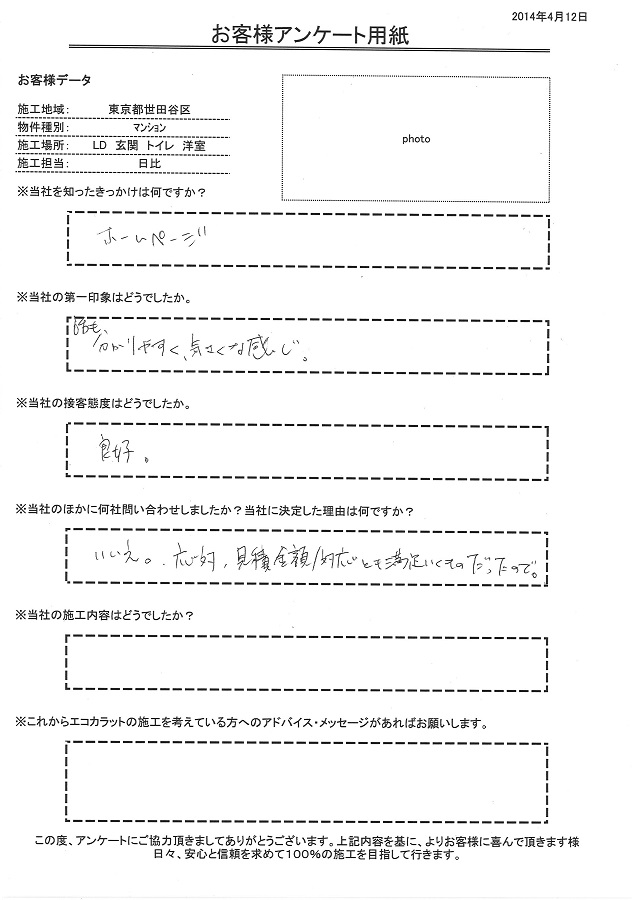 2014年4月12日
お客様アンケート用紙
お客様データ
photo
施工地域: 東京都世田谷区
物件種別: マンション
施工場所: LD 玄関 トイレ 洋室
施工担当: 日比
※当社を知ったきっかけは何ですか?
ホームページ
※当社の第一印象はどうでしたか。
話も、
分かりやすく、気さくな感じ。
※当社の接客態度はどうでしたか。
良好。
※当社のほかに何社問い合わせしましたか?当社に決定した理由は何ですか?
いいえ。応対、見積金額/対応とも満足いくものだったので。
※当社の施工内容はどうでしたか?
※これからエコカラットの施工を考えている方へのアドバイス・メッセージがあればお願いします。
この度、アンケートにご協力頂きましてありがとうございます。上記内容を基に、よりお客様に喜んで頂きます様
日々、安心と信頼を求めて100%の施工を目指して行きます。